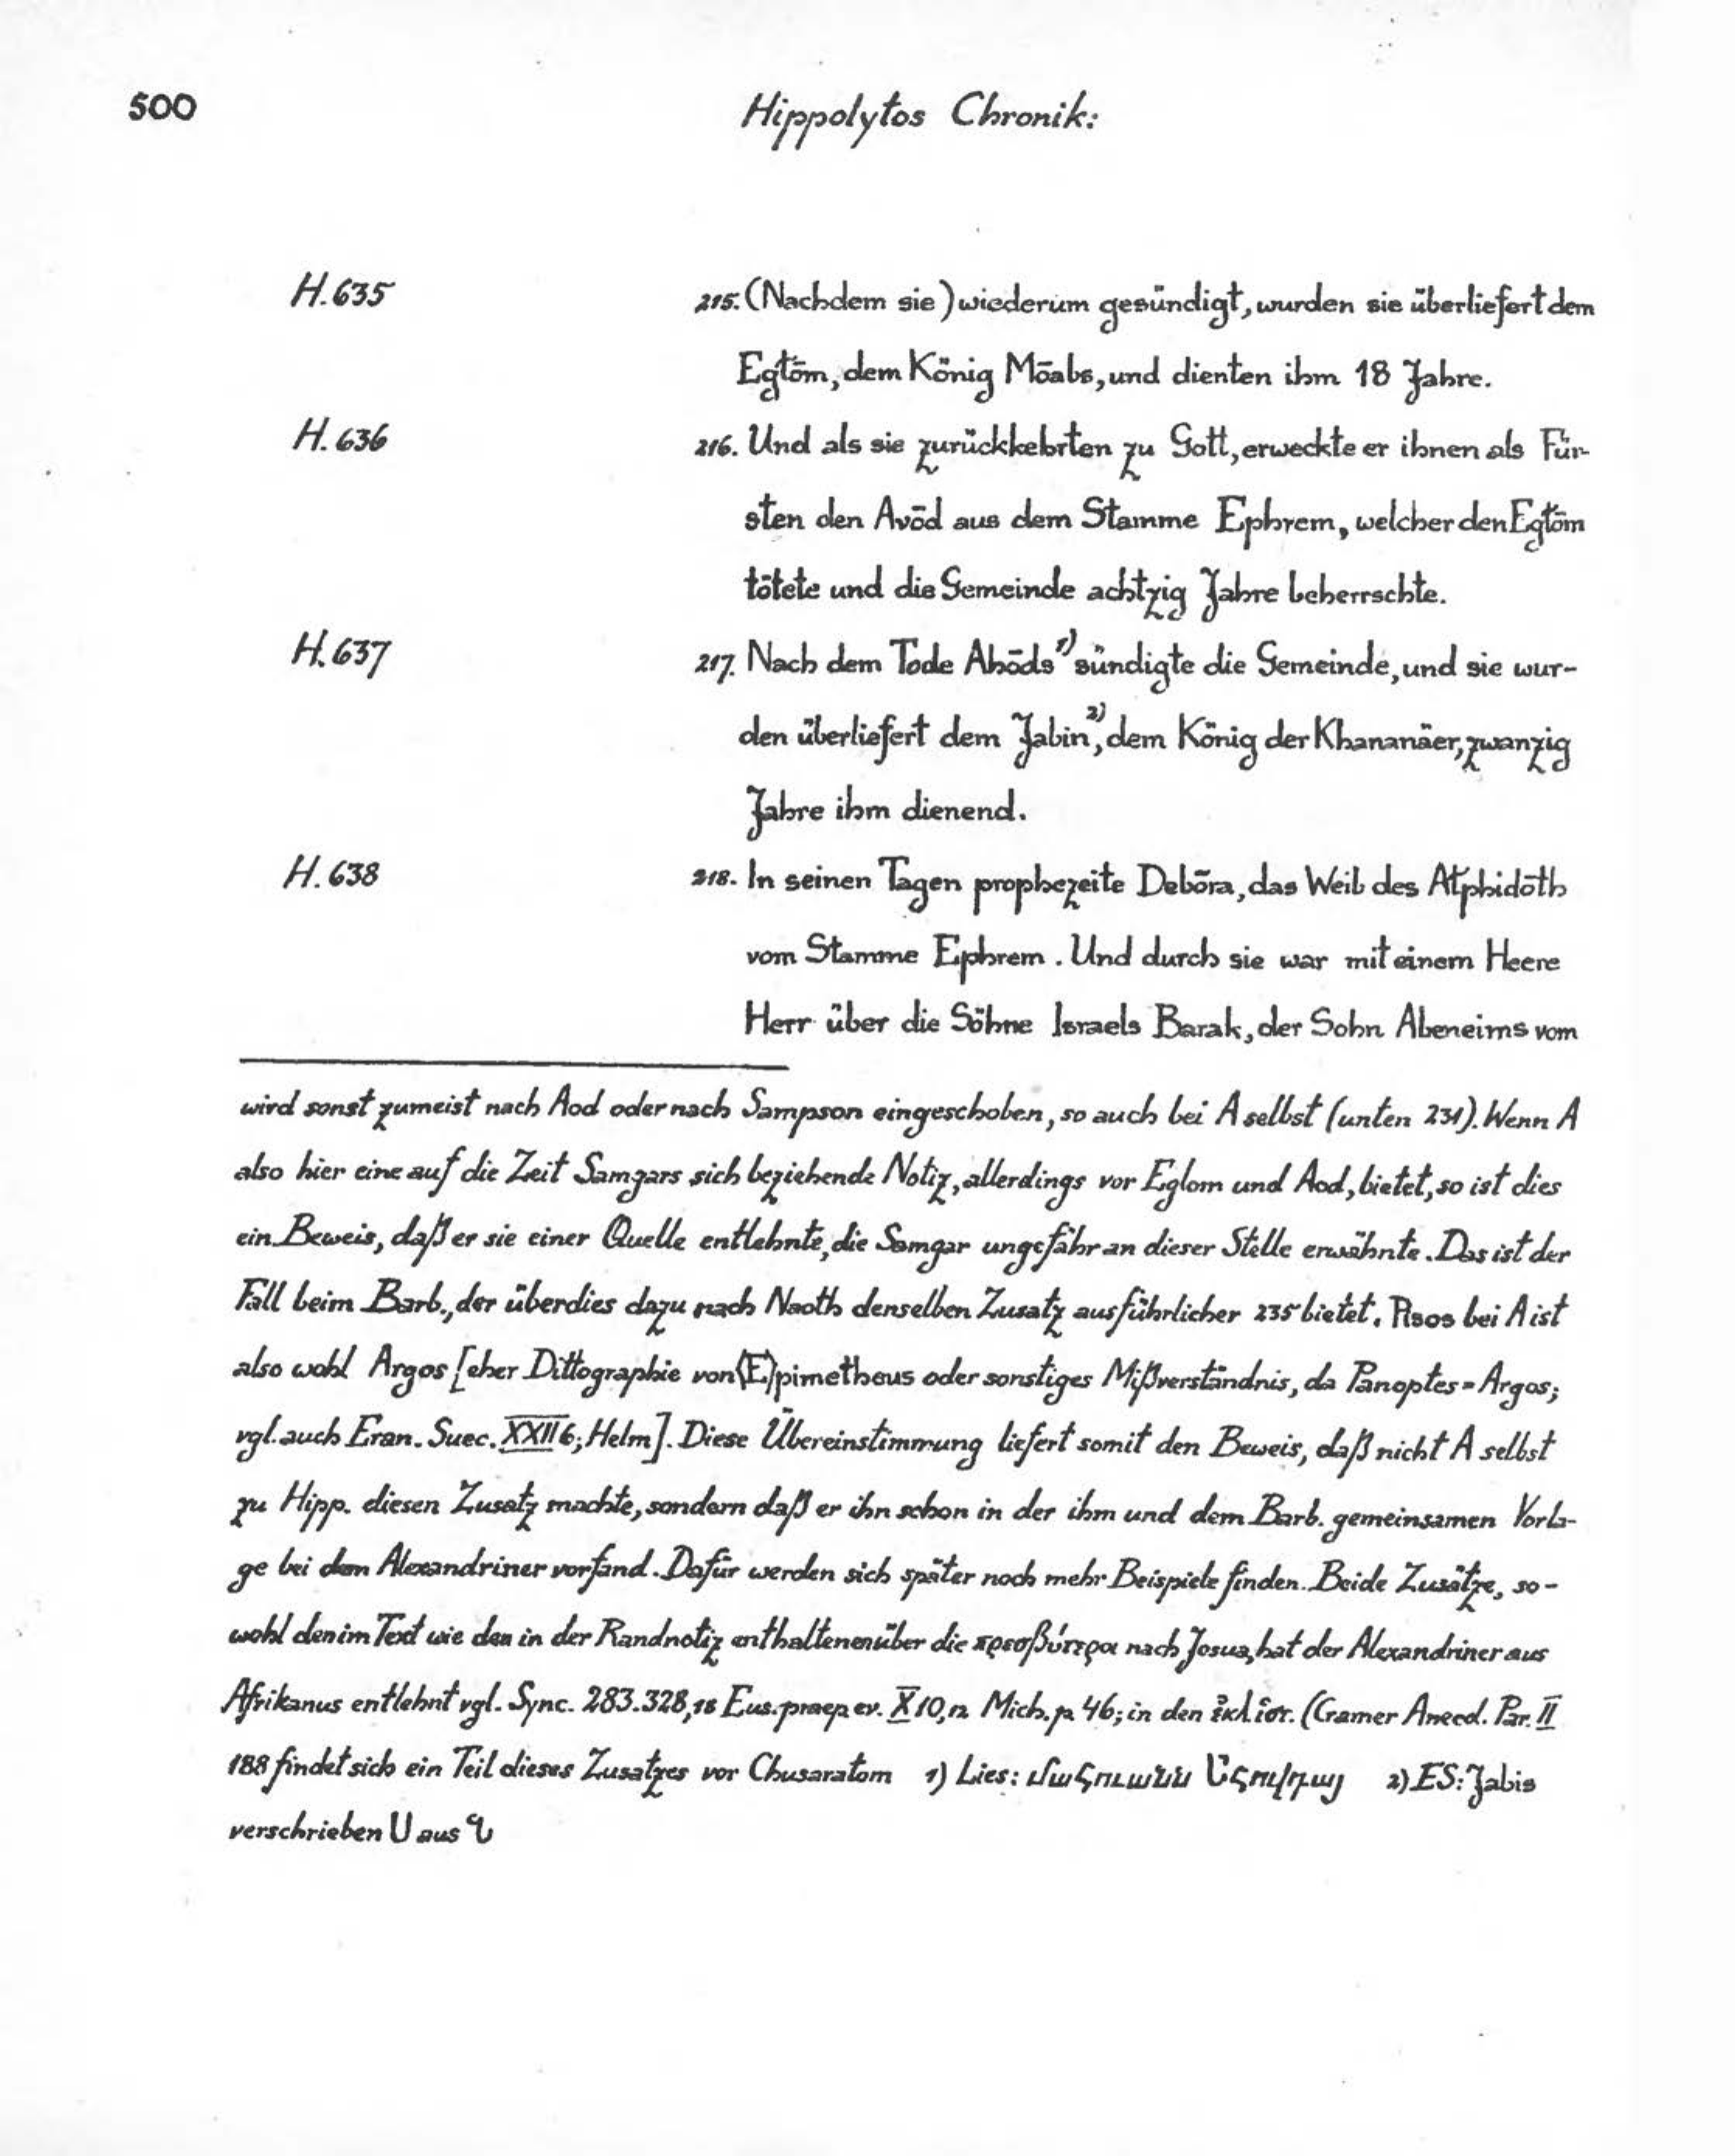 500
Hippolytos Chronik:
H. 635 215. (Nachdem sie) wiederum gesündigt, wurden sie überliefert dem
Egtōm, dem König Mōabs, und dienten ihm 18 Jahre.
H. 636 216. Und als sie zurückkehrten zu Gott, erweckte er ihnen als Für-
sten den Avōd aus dem Stamme Ephrem, welcher den Egtōm
tötete und die Gemeinde achtzig Jahre beherrschte.
H. 637 217. Nach dem Tode Ahōds 1) sündigte die Gemeinde, und sie wur-
den überliefert dem Jabin 2), dem König der Khananäer, zwanzig
Jahre ihm dienend.
H. 638 218. In seinen Tagen prophezeite Debōra, das Weib des Atphidōth
vom Stamme Ephrem. Und durch sie war mit einem Heere
Herr über die Söhne Israels Barak, der Sohn Abeneims vom
wird sonst zumeist nach Aod oder nach Sampson eingeschoben, so auch bei A selbst (unten 231). Wenn A
also hier eine auf die Zeit Samgars sich beziehende Notiz, allerdings vor Eglom und Aod, bietet, so ist dies
ein Beweis, daß er sie einer Quelle entlehnte, die Samgar ungefähr an dieser Stelle erwähnte. Das ist der
Fall beim Barb., der überdies dazu nach Naoth denselben Zusatz ausführlicher 235 bietet. Pisos bei A ist
also wohl Argos [eher Dittographie von (E)pimetheus oder sonstiges Mißverständnis, da Panoptes = Argos;
vgl. auch Eran. Suec. XXII 6; Helm]. Diese Übereinstimmung liefert somit den Beweis, daß nicht A selbst
zu Hipp. diesen Zusatz machte, sondern daß er ihn schon in der ihm und dem Barb. gemeinsamen Vorla-
ge bei dem Alexandriner vorfand. Dafür werden sich später noch mehr Beispiele finden. Beide Zusätze, so-
wohl den im Text wie den in der Randnotiz enthaltenen über die πρεσβύτεροι nach Josua, hat der Alexandriner aus
Afrikanus entlehnt vgl. Sync. 283. 328,18 Eus. praep. ev. X 10,12 Mich. p. 46; in den ἐκλ. ἱστ. (Cramer Anecd. Par. II
188 findet sich ein Teil dieses Zusatzes vor Chusaratom 1) Lies: մահուանն 2) ES: Jabis
verschrieben Ս aus Ն